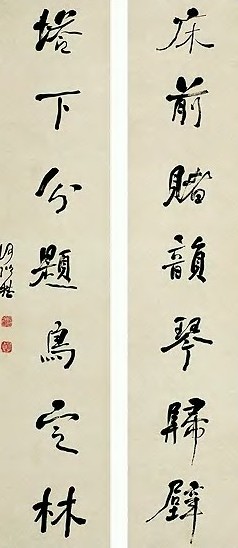 床前賭韻琴歸壁
塔下分題鳥定林